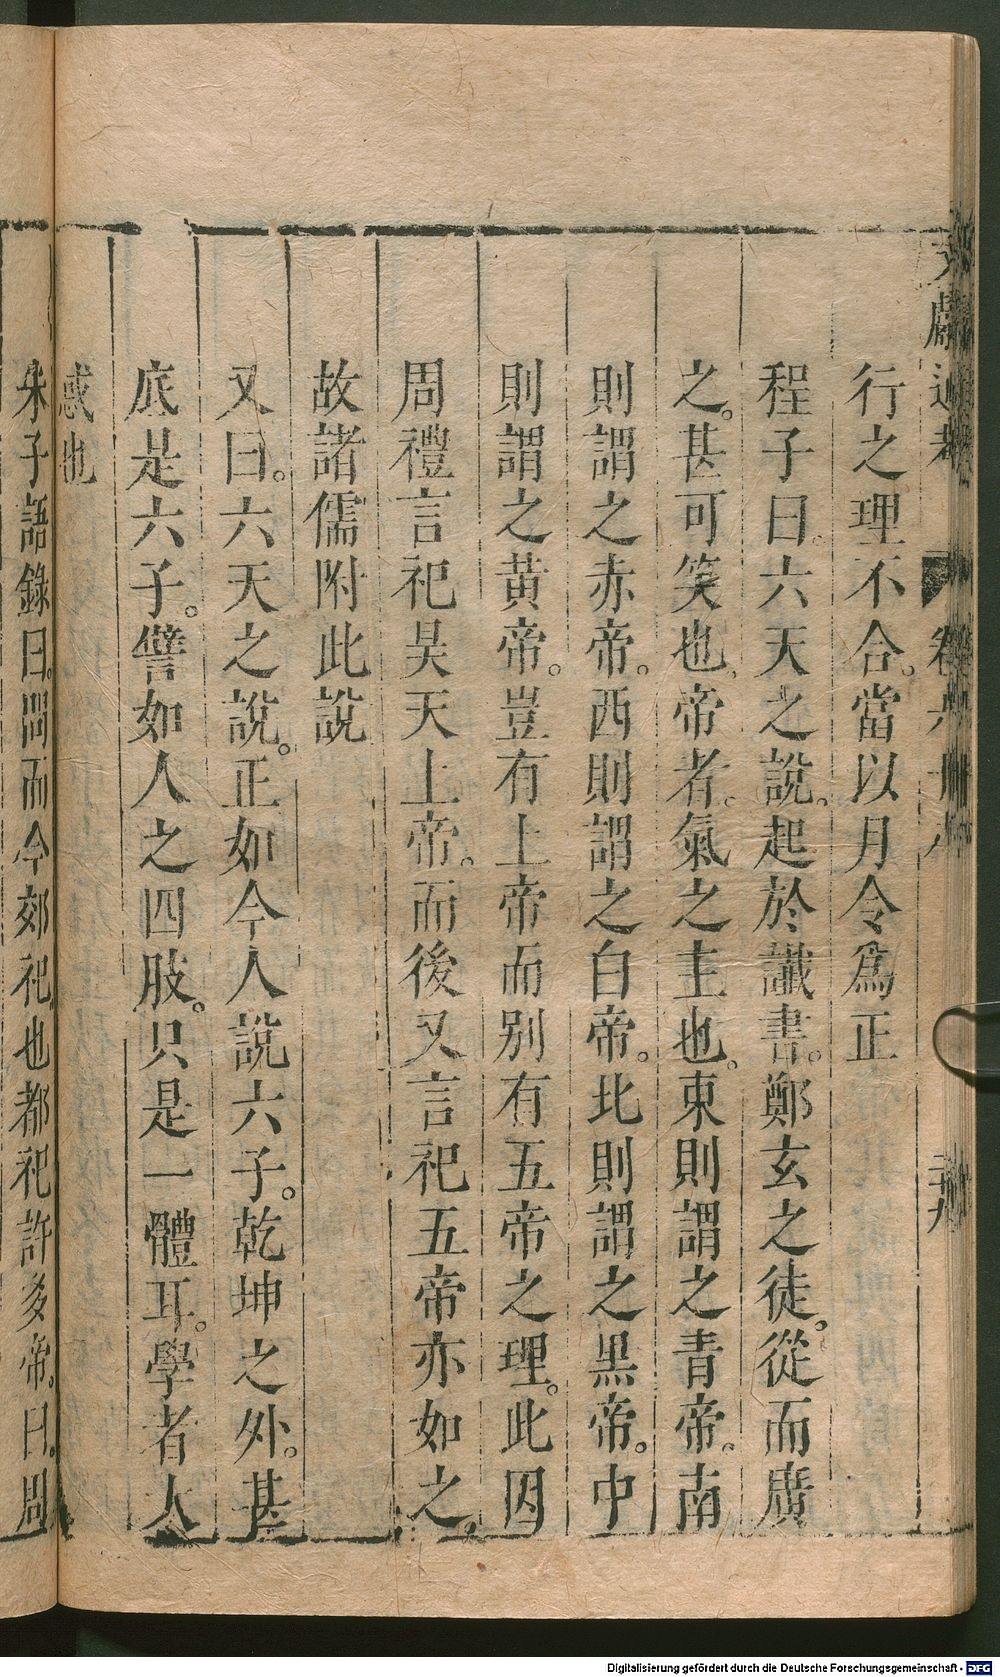 文獻通考
行之理不合。當以月令爲正
程子曰。六天之說。起於讖書。鄭玄之徒。從而廣
之。甚可笑也。帝者。氣之主也。東則謂之青帝。南
則謂之赤帝。西則謂之白帝。北則謂之黑帝。中
則謂之黄帝。豈有上帝而别有五帝之理。此因
周禮言祀昊天上帝。而後又言祀五帝亦如之。
故諸儒附此說
又曰。六天之說。正如今人說六子。乾坤之外。甚
底是六子。譬如人之四肢。只是一體耳。學者大
惑也
朱子語錄曰。問而今郊祀。也都祀許多帝。曰。周
Digitalisierung gefördert durch die Deutsche Forschungsgemeinschaft - DFG